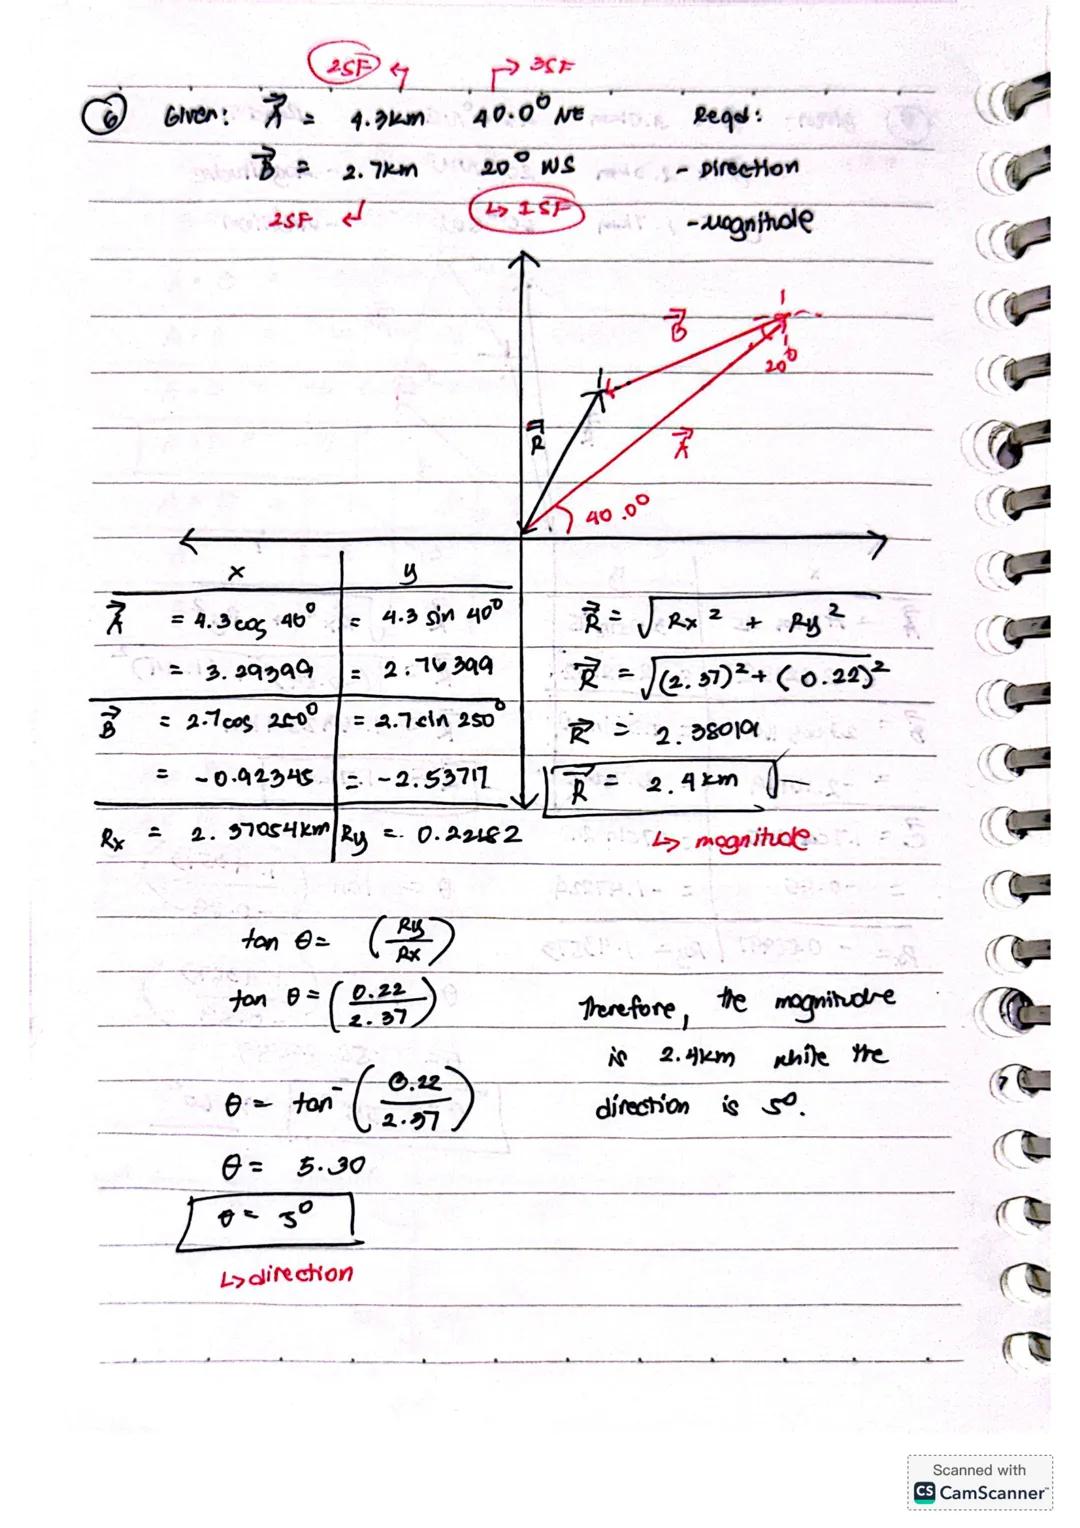 2SF ↲ ↱ 3SF
6 Given: A⃗ = 4.3km 40.0° NE Reqd:
B⃗ = 2.7km 20° WS - Direction
2SF ↲ ↳ 1SF - Magnitude
B⃗
20°
R⃗
A⃗
40.0°
x y
A⃗ = 4.3 cos 40° = 4.3 sin 40°
= 3.29399 = 2.76399
B⃗ = 2.7 cos 250° = 2.7 sin 250°
= -0.92345 = -2.53717
Rx = 2.37054km Ry = 0.22682
R⃗ = √Rx² + Ry²
R⃗ = √(2.37)² + (0.22)²
R⃗ = 2.380191
R⃗ = 2.4km
↳ magnitude
tan θ = (Ry/Rx)
tan θ = (0.22/2.37)
θ = tan⁻ (0.22/2.37)
θ = 5.30
θ = 5°
↳ direction
Therefore, the magnitude
is 2.4km while the
direction is 5°.
Scanned with
CS CamScanner